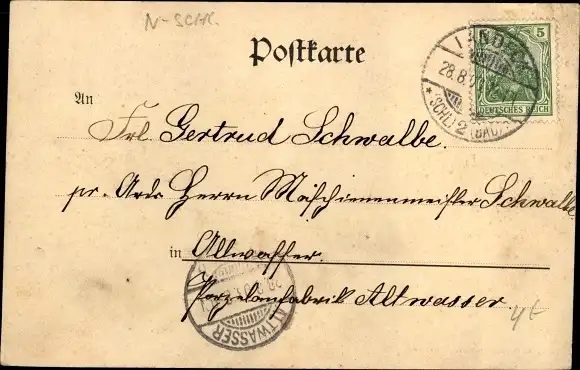 N-SCHL.
Postkarte
5
DEUTSCHES REICH
LANDECK
28.8.
* SCHL. 2 (BAD)
An
Frl. Gertrud Schwalbe.
pr. Adr. Herrn Maschienenmeister Schwalbe
in Altwasser.
Porzelanfabrik Altwasser.
ALTWASSER